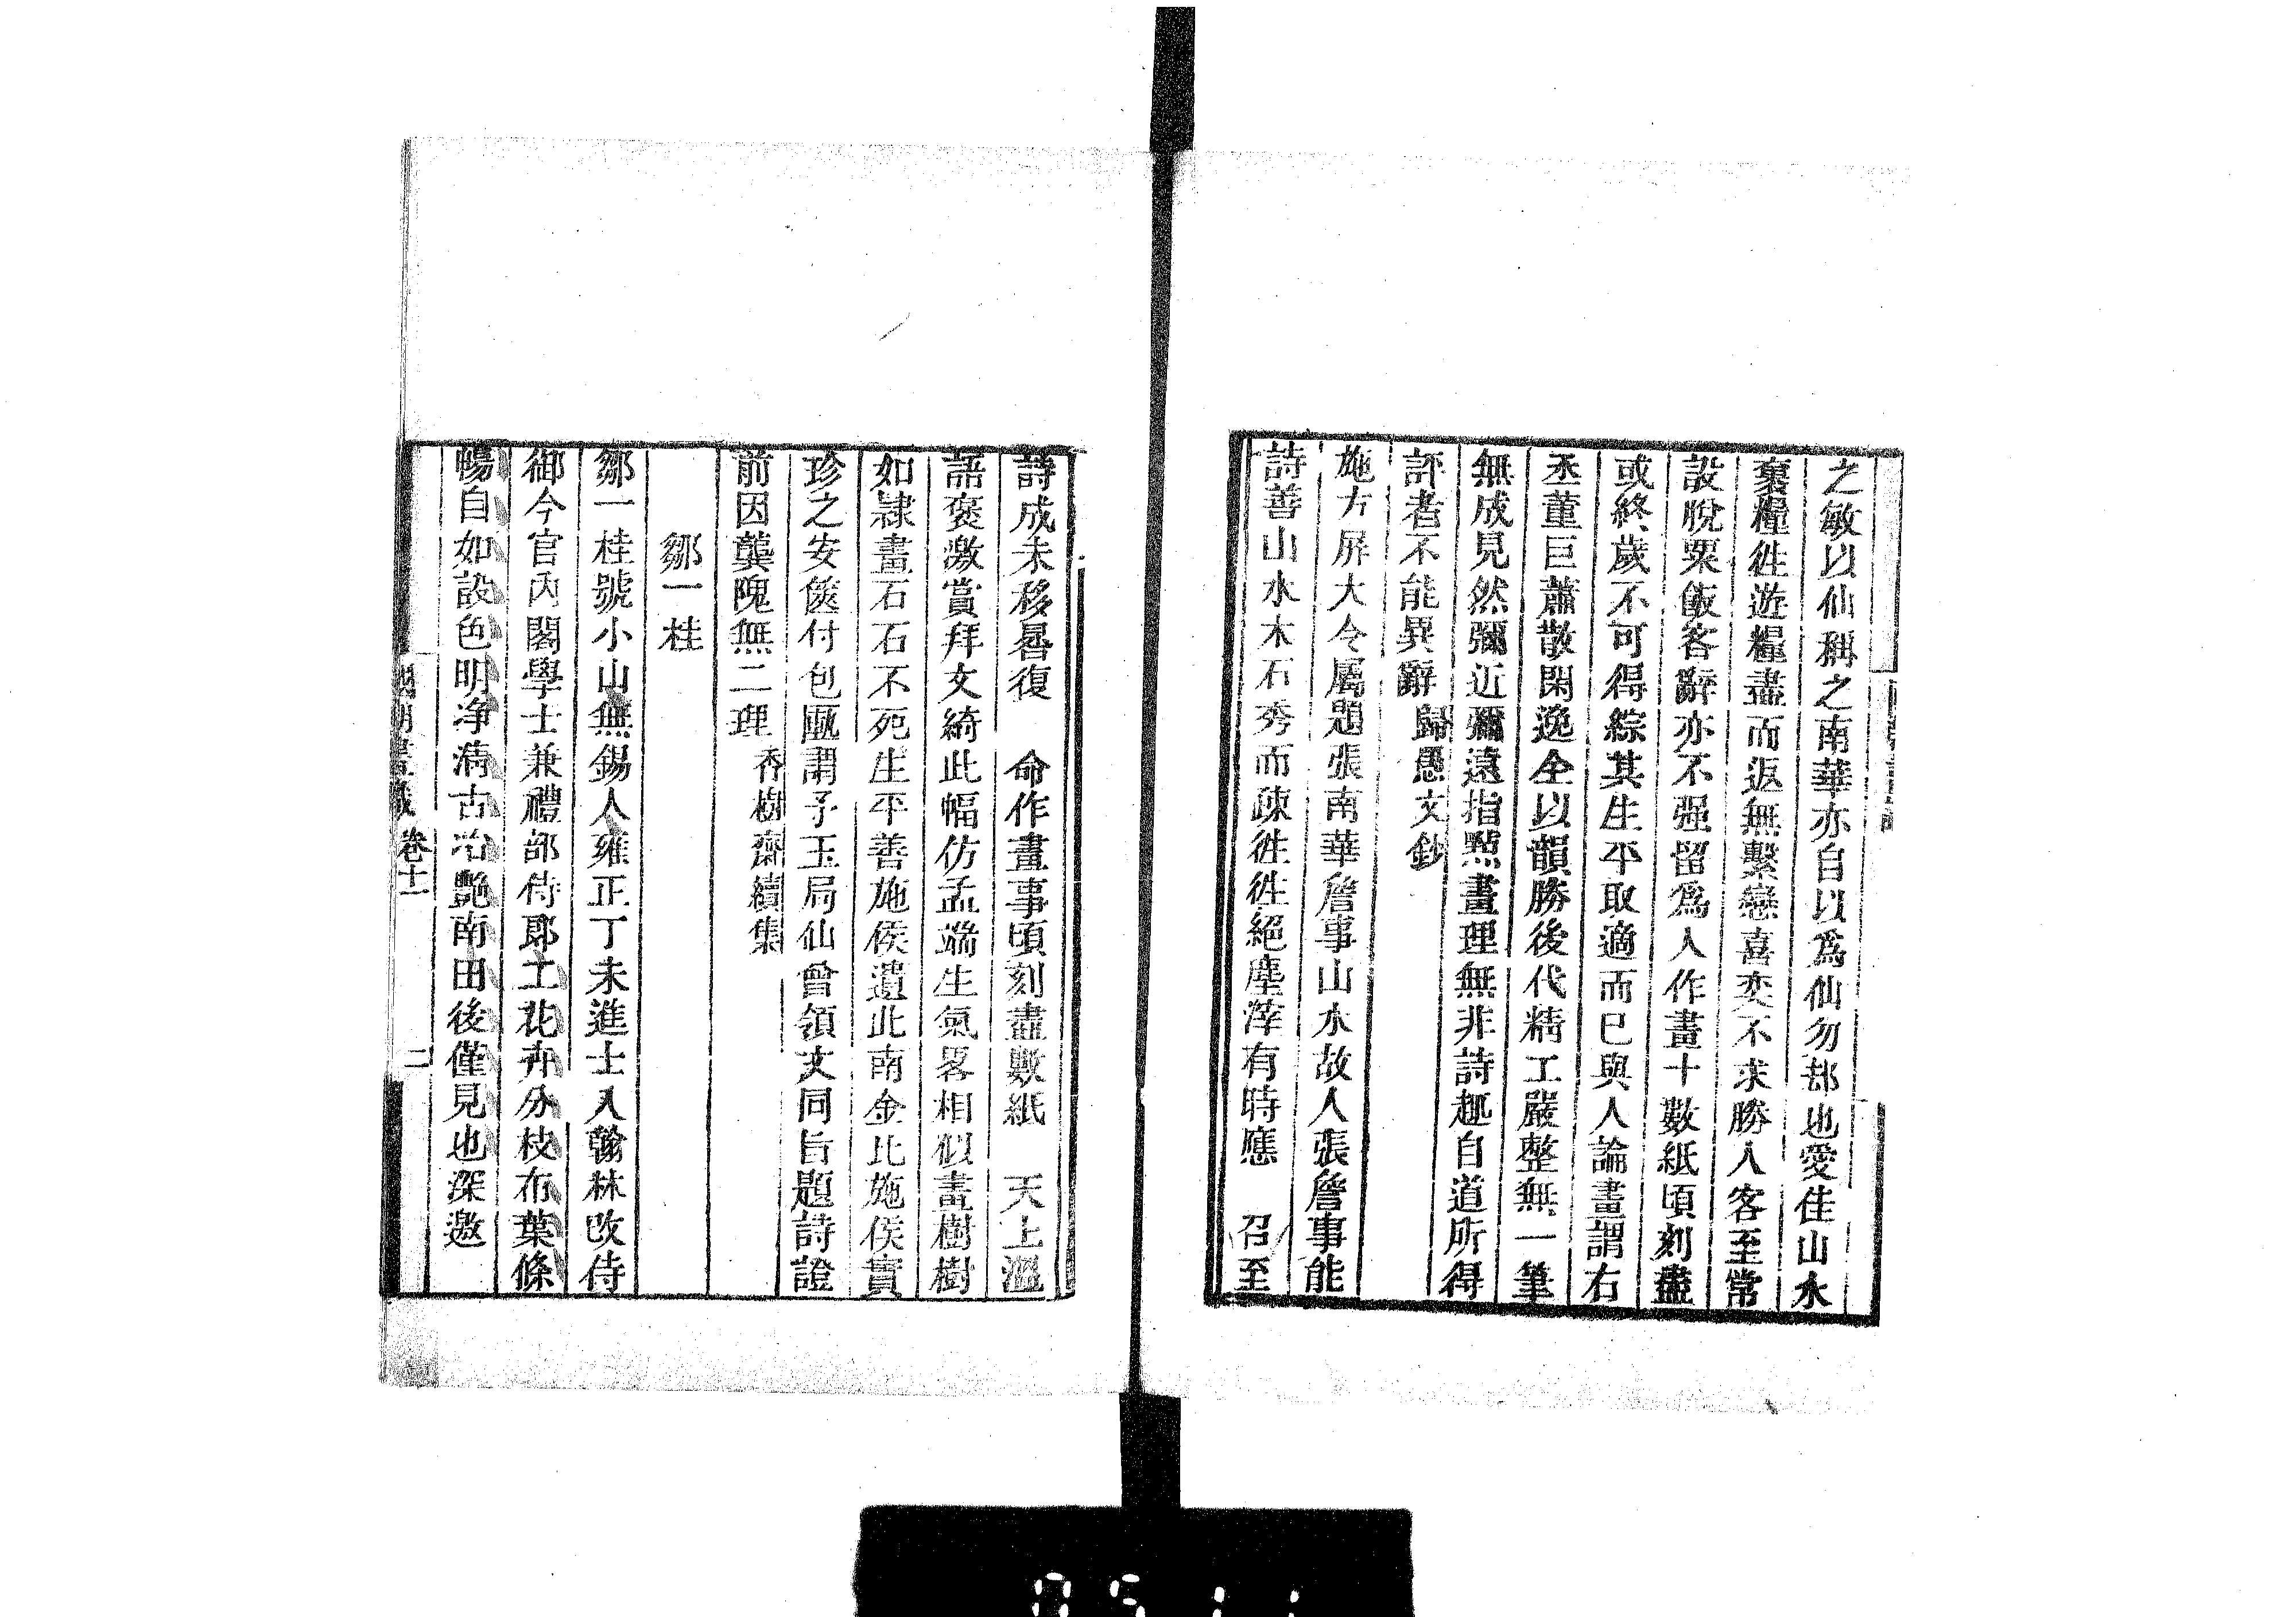 之敏以仙稱之南華亦自以爲仙勿却也愛佳山水
裹糧徃遊糧盡而返無繫戀喜奕不求勝人客至常
設脫粟飯客辭亦不强留爲人作畫十數紙頃刻盡
或終歲不可得綜其生平取適而已與人論畫謂右
丞董巨蕭散閑逸全以韻勝後代精工嚴整無一筆
無成見然彌近彌遠指㸃畫理無非詩趣自道所得
評者不能異辭 歸愚文鈔
施方屏大令屬題張南華詹事山水故人張詹事能
詩善山水木石秀而疎徃徃絕塵滓有時應 召至
詩成未移晷復 命作畫事頃刻盡數紙 天上溫
語褒激賞拜文綺此幅仿孟端生氣畧相似畫樹樹
如隷畫石石不死生平善施侯遺此南金比施侯實
珍之安篋付包匭謂予玉局仙曾領文同旨題詩證
前因龔隗無二理 香樹齋續集
鄒一桂
鄒一桂號小山無錫人雍正丁未進士入翰林改侍
御今官內閣學士兼禮部侍郎工花卉分枝布葉條
暢自如設色明净淸古冶艷南田後僅見也深邀
國朝畫識 卷十一 二
0511